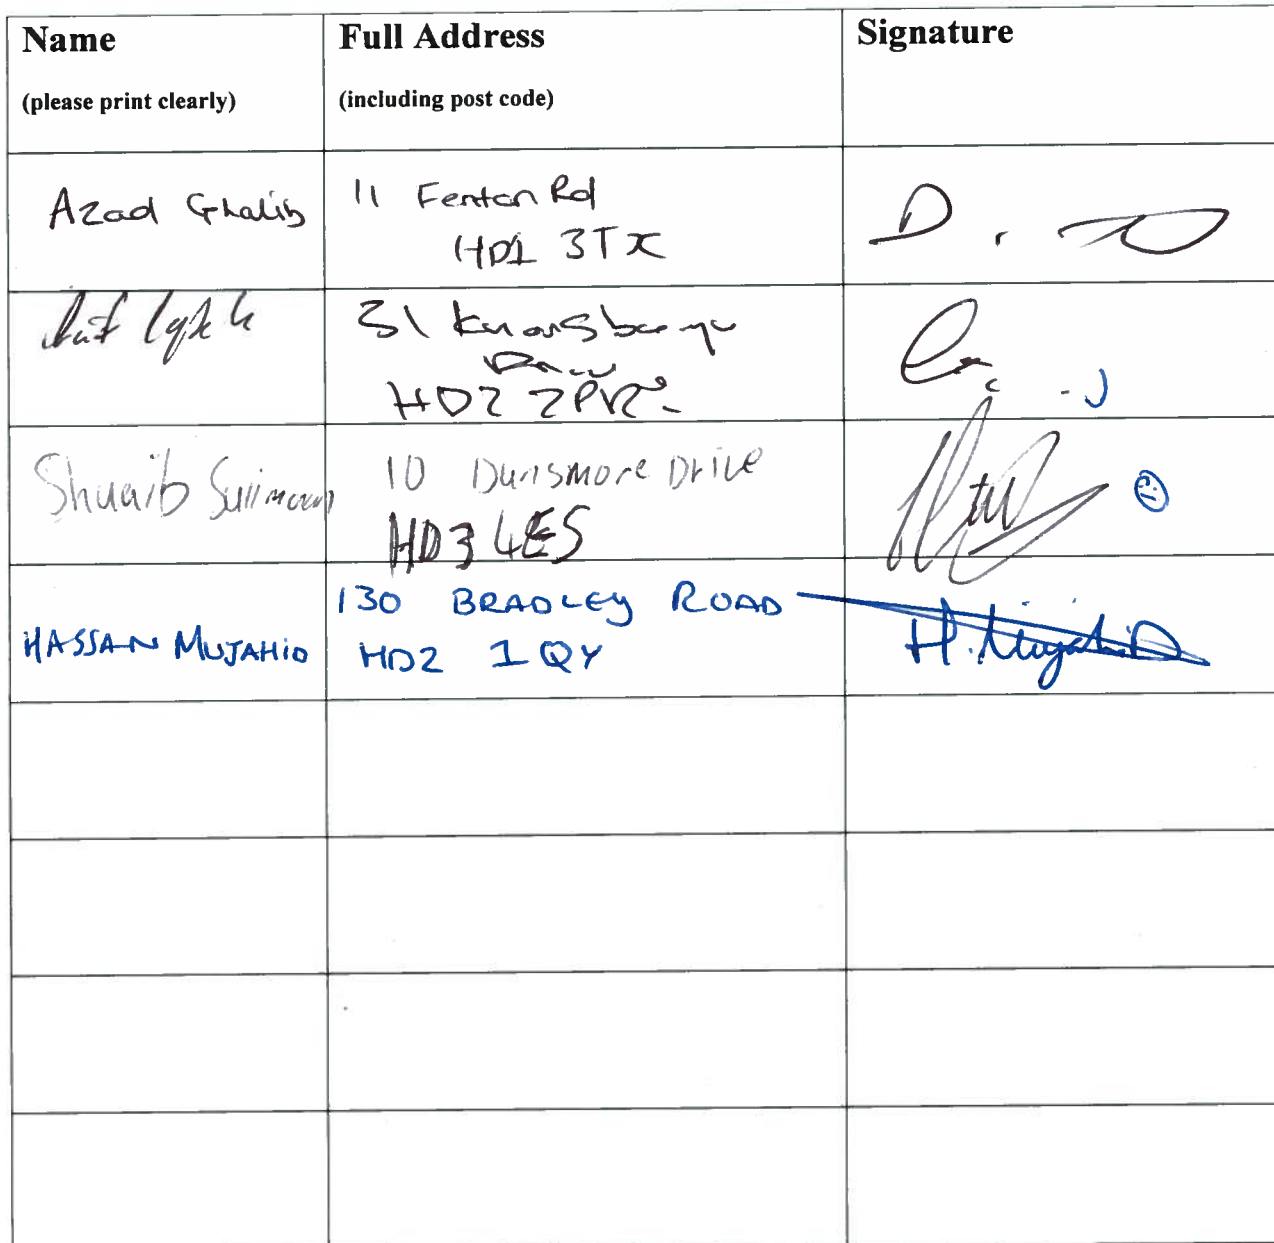 Name
(please print clearly)
Full Address
(including post code)
Signature
Azad Ghalib
11 Fenton Rd
HD1 3TX
31
HD2 2PR
Shuaib
10 Dunsmore Drive
HD3 4ES
HASSAN MUJAHID
130 BRADLEY ROAD
HD2 1QY
H. Mujahid